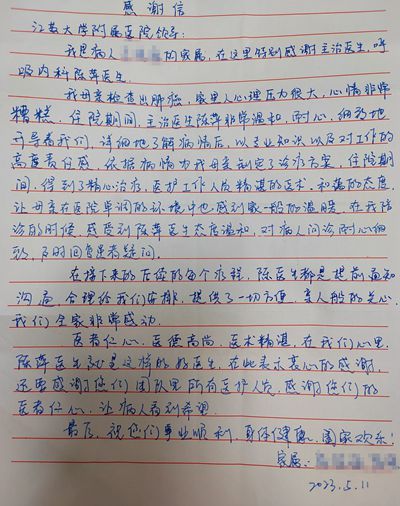 感谢信
江苏大学附属医院领导:
我是病人 的家属,在这里特别感谢主治医生,呼
吸内科陈萍医生.
我母亲检查出肺癌,家里人心理压力很大,心情非常
糟糕,住院期间,主治医生陈萍非常温和,耐心,细致地
开导着我们,详细地了解病情后,以专业知识以及对工作的
高度责任感,依据病情为我母亲制定了诊疗方案,住院期
间,得到了精心治疗,医护工作人员精湛的医术,和蔼的态度,
让母亲在医院单调的环境中也感到家一般的温暖,在我陪
诊的时候,感受到陈萍医生态度温和,对病人问诊耐心细
致,及时回复患者疑问.
在接下来的后续的每个疗程,陈医生都是提前通知
沟通,合理给我们安排,提供了一切方便,亲人般的关心,
我们全家非常感动.
医者仁心,医德高尚,医术精湛,在我们心里,
陈萍医生就是这样的好医生,在此表示衷心的感谢,
还要感谢您们团队里所有医护人员,感谢您们的
医者仁心,让病人看到希望.
最后,祝您们事业顺利,身体健康,阖家欢乐!
家属:
2023.5.11